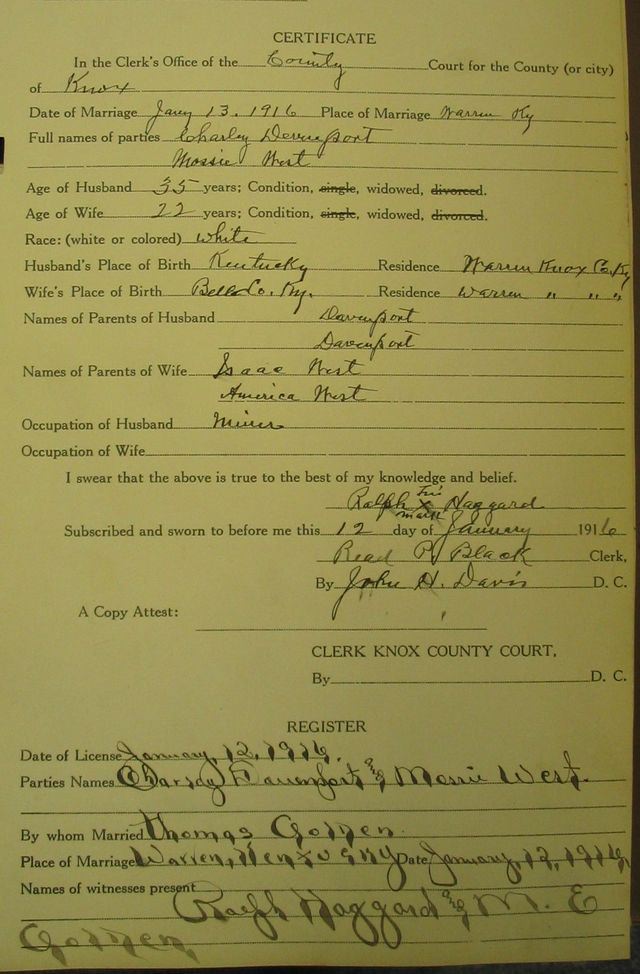 CERTIFICATE
In the Clerk's Office of the County Court for the County (or city)
of Knox
Date of Marriage Jany 13, 1916 Place of Marriage Warren Ky
Full names of parties Charley Davenport
Mossie West
Age of Husband 35 years; Condition, single, widowed, divorced.
Age of Wife 22 years; Condition, single, widowed, divorced.
Race: (white or colored) White
Husband's Place of Birth Kentucky Residence Warren Knox Co. Ky
Wife's Place of Birth Bell Co. Ky. Residence Warren " " "
Names of Parents of Husband Davenport
Davenport
Names of Parents of Wife Isaac West
America West
Occupation of Husband Miner
Occupation of Wife
I swear that the above is true to the best of my knowledge and belief.
his
Ralph X Haggard
mark
Subscribed and sworn to before me this 12 day of January 1916
Read P. Black Clerk,
By John H. Davis D. C.
A Copy Attest:
CLERK KNOX COUNTY COURT,
By D. C.
REGISTER
Date of License January, 12, 1916.
Parties Names Charley Davenport & Mossie West
By whom Married Thomas Golden
Place of Marriage Warren, Date January, 1916,
Names of witnesses present
Ralph Haggard & M. E
Golden